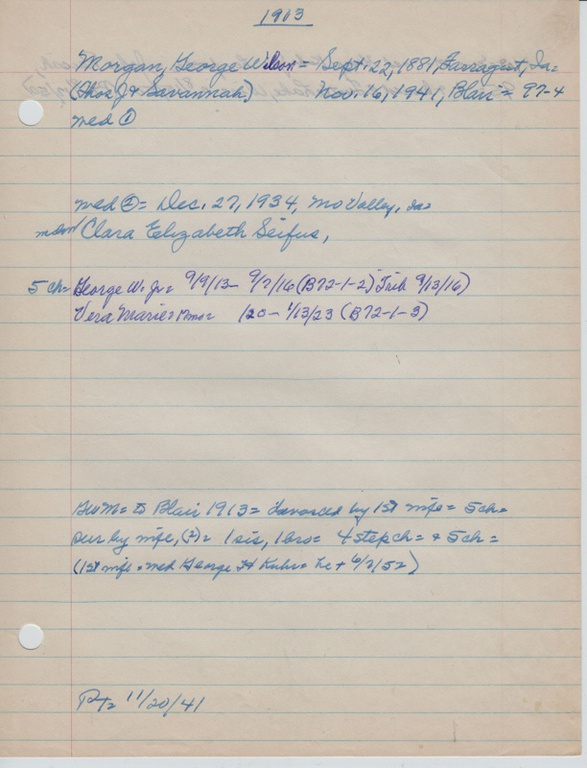 1913
Morgan, George Wilson = Sept. 22, 1881, Farragut, Ia.
(Thos J & Savannah) Nov. 16, 1941, Blair = 97-4
med ①
med ② = Dec. 27, 1934, Mo Valley, Ia
Clara Elizabeth Seifus,
5 ch = George W. Jr = 9/9/13 - 9/7/16 (B72-1-2) Trib 9/13/16)
Vera Marie = mo = 120 - 1/13/23 (B72-1-3)
GWM = to Blair 1913 = divorced by 1st wife = 5 ch =
sur by wife, (2) = 1 sis, 1 bro = 4 step ch = & 5 ch =
(1st wife = med George H Kuhr = Le + 6/2/52)
PT = 11/20/41